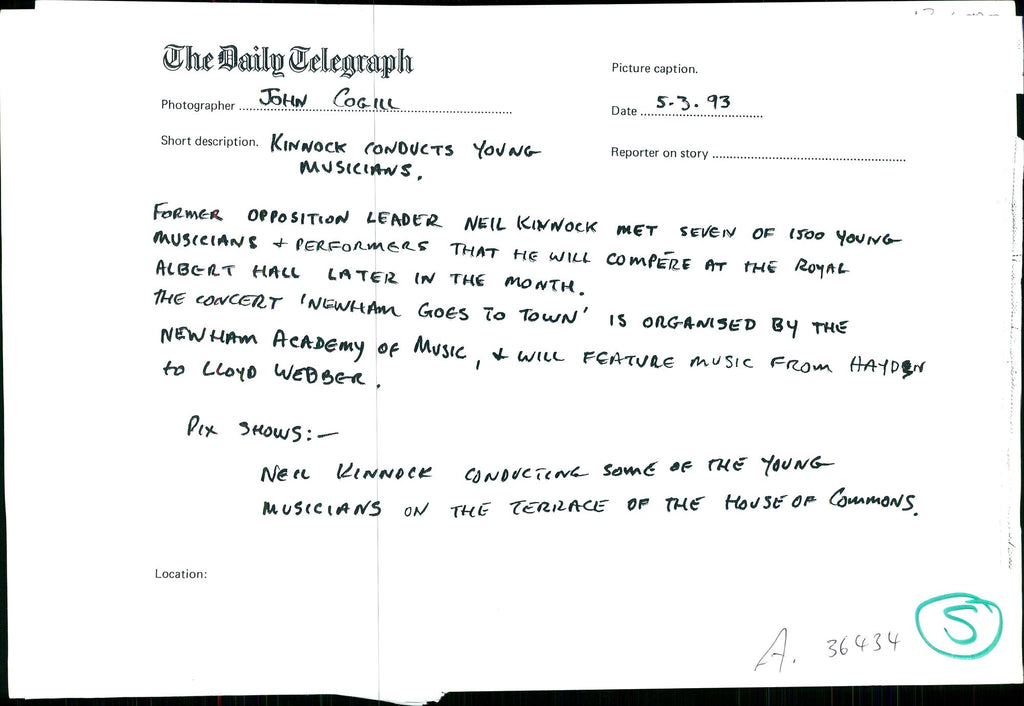 The Daily Telegraph
Picture caption.
Photographer JOHN COGILL
Date 5.3.93
Short description. KINNOCK CONDUCTS YOUNG
MUSICIANS.
Reporter on story
FORMER OPPOSITION LEADER NEIL KINNOCK MET SEVEN OF 1500 YOUNG
MUSICIANS & PERFORMERS THAT HE WILL COMPÈRE AT THE ROYAL
ALBERT HALL LATER IN THE MONTH.
THE CONCERT 'NEWHAM GOES TO TOWN' IS ORGANISED BY THE
NEWHAM ACADEMY OF MUSIC, & WILL FEATURE MUSIC FROM HAYDEN
to LLOYD WEBBER.
PIX SHOWS:—
NEIL KINNOCK CONDUCTING SOME OF THE YOUNG
MUSICIANS ON THE TERRACE OF THE HOUSE OF COMMONS.
Location:
A. 36434
S